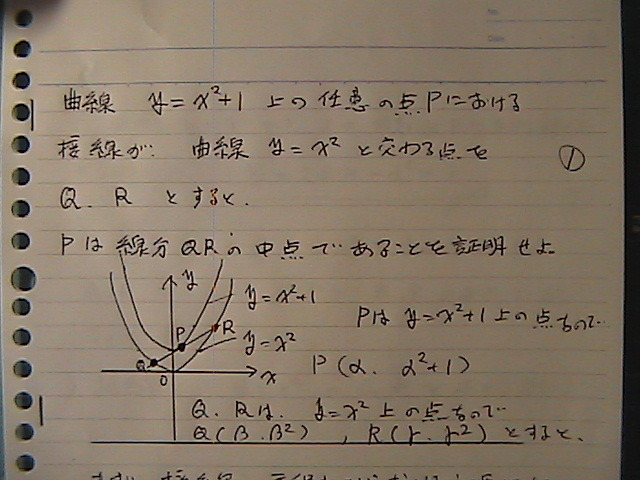 No.
Date
曲線 y=x²+1 上の任意の点Pにおける
接線が. 曲線 y=x² と交わる点を
①
Q. R とすると.
Pは線分QRの中点であることを証明せよ
y
y=x²+1
Pは y=x²+1 上の点なので
P
R
y=x²
Q
P(α. α²+1)
0
x
Q. Rは. y=x² 上の点なので
Q(β.β²) , R(γ.γ²) とすると.